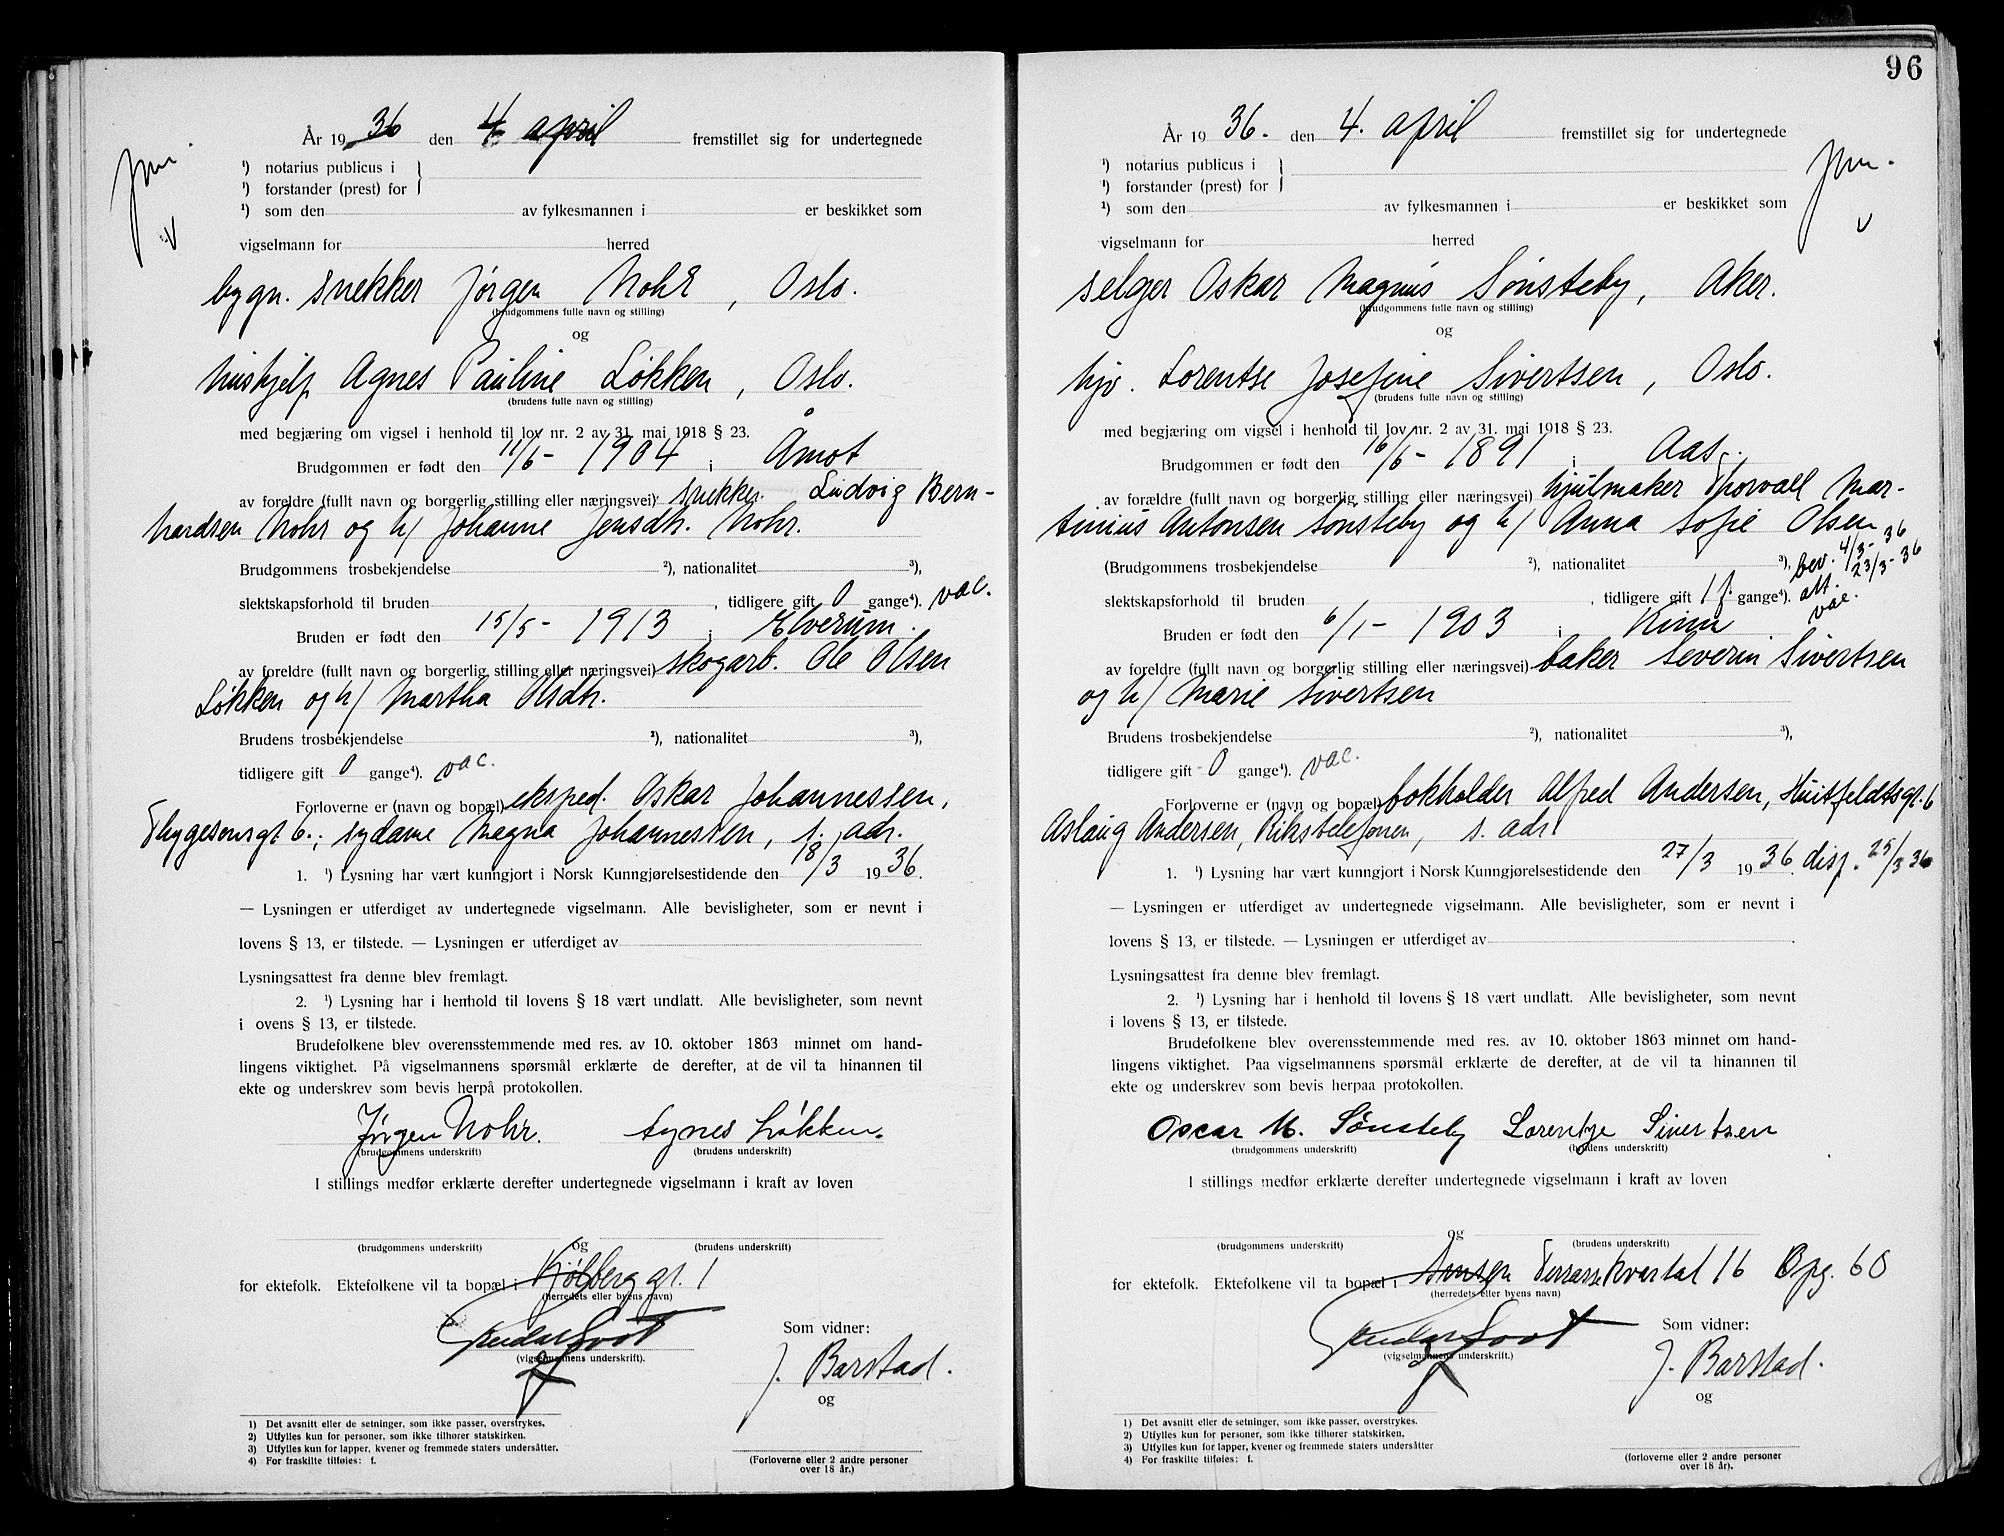 År 1936 den 4 april fremstillet sig for undertegnede
¹) notarius publicus i
¹) forstander (prest) for
¹) som den av fylkesmannen i er beskikket som
vigselmann for herred
bygn. snekker Jørgen Mohr, Oslo.
(brudgommens fulle navn og stilling)
og
hushjelp Agnes Pauline Løkken, Oslo.
(brudens fulle navn og stilling)
med begjæring om vigsel i henhold til lov nr. 2 av 31. mai 1918 § 23.
Brudgommen er født den 11/6 - 1904 i Åmot
av foreldre (fullt navn og borgerlig stilling eller næringsvei) snekker Ludvig Bern-
hardsen Mohr og h/ Johanne Jensdtr. Mohr.
Brudgommens trosbekjendelse ²), nationalitet ³),
slektskapsforhold til bruden , tidligere gift 0 gange⁴). vac.
Bruden er født den 15/5 - 1913 i Elverum.
av foreldre (fullt navn og borgerlig stilling eller næringsvei) skogarb. Ole Olsen
Løkken og h/ Martha Olsdtr.
Brudens trosbekjendelse ²), nationalitet ³),
tidligere gift 0 gange⁴). vac.
Forloverne er (navn og bopæl) eksped. Oskar Johannessen,
Thygesensgt 6.; sydame Magna Johannessen, s. adr.
1. ¹) Lysning har vært kunngjort i Norsk Kunngjørelsestidende den 18/3 1936.
— Lysningen er utferdiget av undertegnede vigselmann. Alle bevisligheter, som er nevnt i
lovens § 13, er tilstede. — Lysningen er utferdiget av
Lysningsattest fra denne blev fremlagt.
2. ¹) Lysning har i henhold til lovens § 18 vært undlatt. Alle bevisligheter, som nevnt
i ovens § 13, er tilstede.
Brudefolkene blev overensstemmende med res. av 10. oktober 1863 minnet om hand-
lingens viktighet. På vigselmannens spørsmål erklærte de derefter, at de vil ta hinannen til
ekte og underskrev som bevis herpå protokollen.
Jørgen Mohr. Agnes Løkken.
(brudgommens underskrift) (brudens underskrift)
I stillings medfør erklærte derefter undertegnede vigselmann i kraft av loven
og
(brudgommens underskrift) (brudens underskrift)
for ektefolk. Ektefolkene vil ta bopæl i Kjølberggt. 1
(herredets eller byens navn)
Som vidner:
(vigselmannens underskrift).
J. Barstad.
og
1) Det avsnitt eller de setninger, som ikke passer, overstrykes.
2) Utfylles kun for personer, som ikke tilhører statskirken.
3) Utfylles kun for lapper, kvener og fremmede staters undersåtter.
4) For fraskilte tilføies: f.
(Forloverne eller 2 andre personer
over 18 år.)
96
År 1936. den 4. april fremstillet sig for undertegnede
¹) notarius publicus i
¹) forstander (prest) for
¹) som den av fylkesmannen i er beskikket som
vigselmann for herred
selger Oskar Magnus Sønsteby, Aker.
(brudgommens fulle navn og stilling)
og
hjv. Lorentse Josefine Sivertsen, Oslo.
(brudens fulle navn og stilling)
med begjæring om vigsel i henhold til lov nr. 2 av 31. mai 1918 § 23.
Brudgommen er født den 16/6 - 1891 i Aas.
av foreldre (fullt navn og borgerlig stilling eller næringsvei) hjulmaker Thorvall Mar-
tinius Antonsen Sønsteby og h/ Anna Sofie Olsen
(Brudgommens trosbekjendelse ²), nationalitet ³), bev. 4/3 - 36
23/3 - 36
slektskapsforhold til bruden , tidligere gift 1 f. gange⁴). att.
vac.
Bruden er født den 6/1 - 1903 i Kinn
av foreldre (fullt navn og borgerlig stilling eller næringsvei) baker Severin Sivertsen
og h/ Marie Sivertsen
Brudens trosbekjendelse ²), nationalitet ³),
tidligere gift 0 gange⁴). vac.
Forloverne er (navn og bopæl) bokholder Alfred Andersen, Huitfeldtsgt. 6
Aslaug Andersen, Rikstelefonen, s. adr.
1. ¹) Lysning har vært kunngjort i Norsk Kunngjørelsestidende den 27/3 1936. disp. 25/3 36
— Lysningen er utferdiget av undertegnede vigselmann. Alle bevisligheter, som er nevnt i
lovens § 13, er tilstede. — Lysningen er utferdiget av
Lysningsattest fra denne blev fremlagt.
2. ¹) Lysning har i henhold til lovens § 18 vært undlatt. Alle bevisligheter, som nevnt
i lovens § 13, er tilstede.
Brudefolkene blev overensstemmende med res. av 10. oktober 1863 minnet om hand-
lingens viktighet. Paa vigselmannens spørsmål erklærte de derefter, at de vil ta hinannen til
ekte og underskrev som bevis herpaa protokollen.
Oscar M. Sønsteby Lorentze Sivertsen
(brudgommens underskrift) (brudens underskrift)
I stillings medfør erklærte derefter undertegnede vigselmann i kraft av loven
og
(brudgommens underskrift) (brudens underskrift)
for ektefolk. Ektefolkene vil ta bopæl i Terrassekvartal 16 Opg. 60
(herredets eller byens navn)
Som vidner:
(vigselmannens underskrift.)
J. Barstad.
og
1) Det avsnitt eller de setninger, som ikke passer, overstrykes.
2) Utfylles kun for personer, som ikke tilhører statskirken.
3) Utfylles kun for lapper, kvener og fremmede staters undersåtter
4) For fraskilte tilføies: f.
(forloverne eller 2 andre personer
over 18 år).